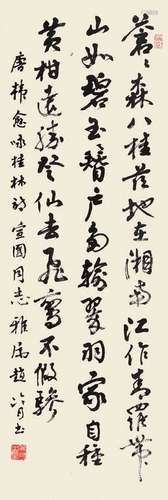 蒼〻森八桂茲地在湘南江作青羅帶
山如碧玉簪户多輸翠羽家自種
黄柑遠勝登仙去飛鸞不假驂
唐韓愈咏桂林詩宣國同志雅屬趙冷月書